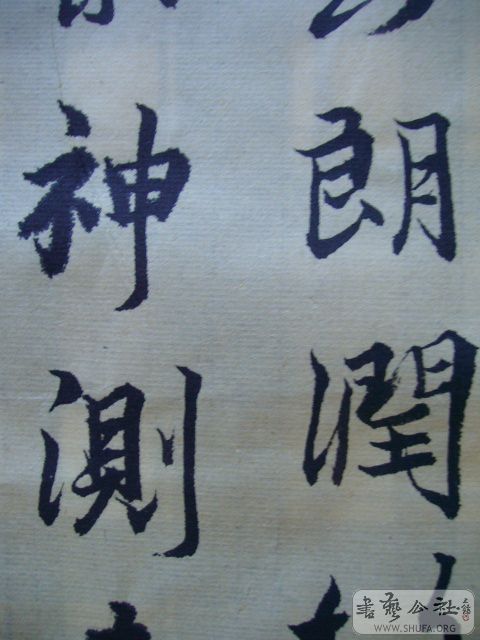 朗潤
神測
書藝公社
WWW.SHUFA.ORG